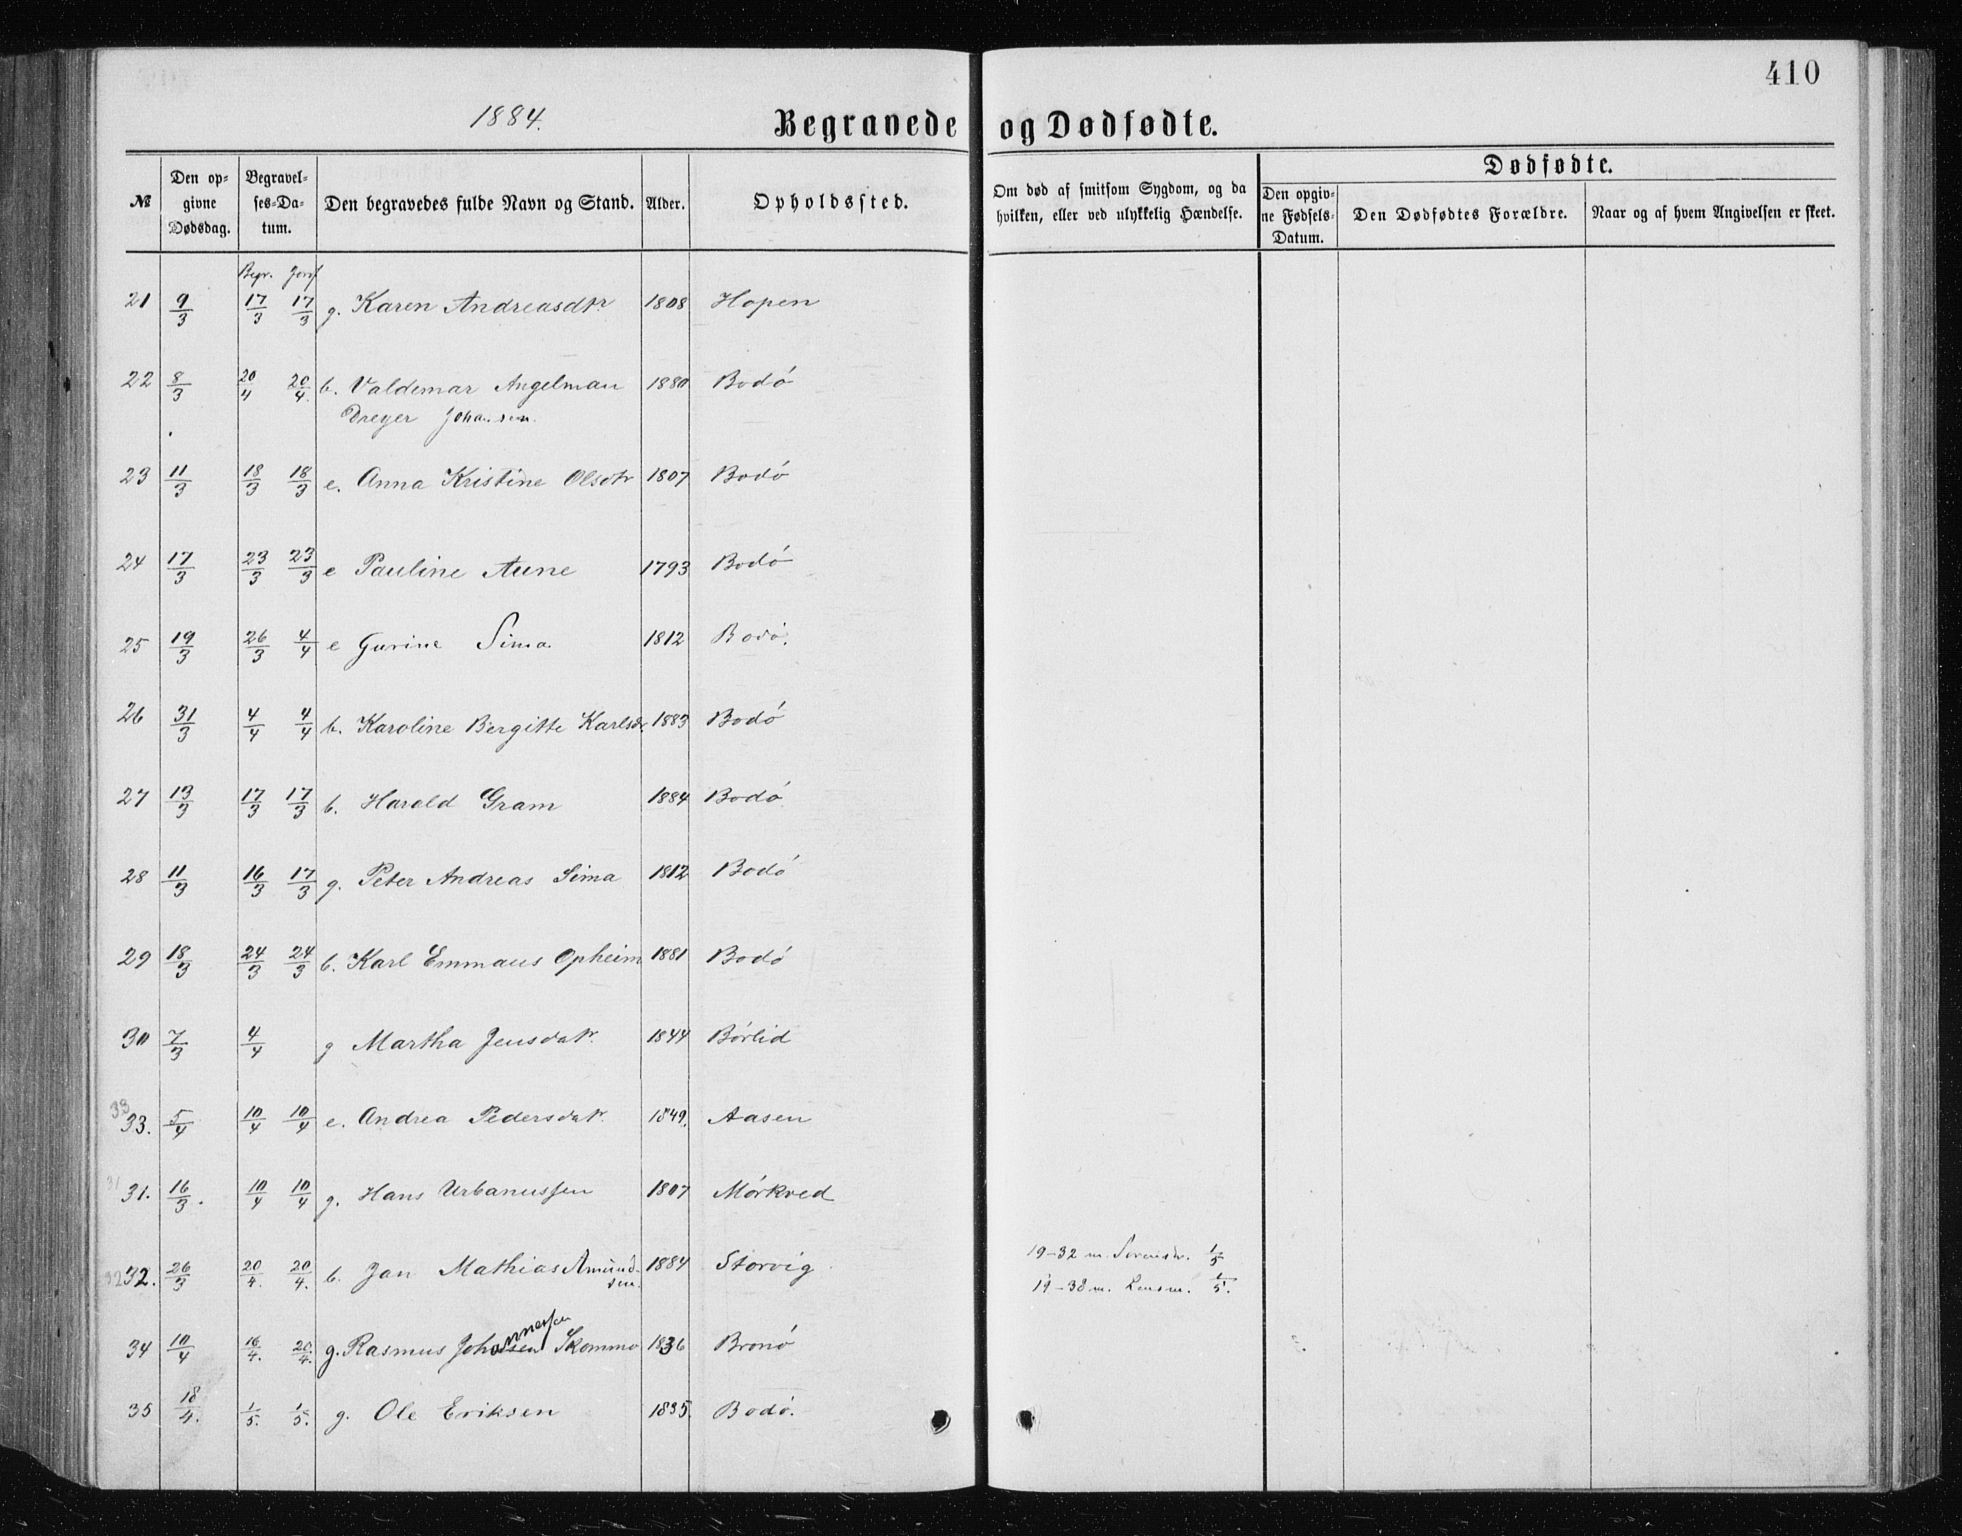 410
1884.
Begravede og Dødfødte.
№ | Den opgivne Dødsdag. | Begravelses-Datum. | Den begravedes fulde Navn og Stand. | Alder. | Opholdssted. | Om død af smitsom Sygdom, og da hvilken, eller ved ulykkelig Hændelse. | Dødfødte. | Den opgivne Fødsels-Datum. | Den Dødfødtes Forældre. | Naar og af hvem Angivelsen er skeet.
Begr. Jordf
21 9/3 17/3 17/3 g. Karen Andreasdtr. 1808 Hopen
22 8/3 20/4 20/4. b. Valdemar Angelman 1880 Bodó
Dreyer Johansen.
23 11/3 18/3 18/3 e. Anna Kristine Olsdtr 1807 Bodó
24 17/3 23/3 23/3 e Pauline Aune 1793 Bodó
25 19/3 26/3 4/4 e Gurine Sima 1812 Bodó.
26 31/3 4/4 4/4 b. Karoline Bergitte Karlsdr. 1883 Bodó
27 13/3 17/3 17/3 b. Harald Gram 1884 Bodó
28 11/3 16/3 17/3 g. Peter Andreas Sima 1812 Bodó
29 18/3 24/3 24/3 b. Karl Emmaus Opheim 1881 Bodó
30 7/3 4/4 g Martha Jensdatr. 1844 Börlid
33
33. 5/4 10/4 10/4 e. Andrea Pedersdatr. 1849. Aasen
31 31. 16/3. 10/4 10/4 g. Hans Urbanussen 1807 Mórkved
32 32. 26/3 20/4. 20/4. b. Jan Mathias Amundsen. 1884 Storvig
19-32 m. Sorenskr. 1/5
19-38 m. Lensm. 1/5.
34 10/4 16/4. 20/4. g. Rasmus Johannessen Skommo 1836 Bronó
35 18/4. 1/5. 1/5. g. Ole Eriksen 1835. Bodó.